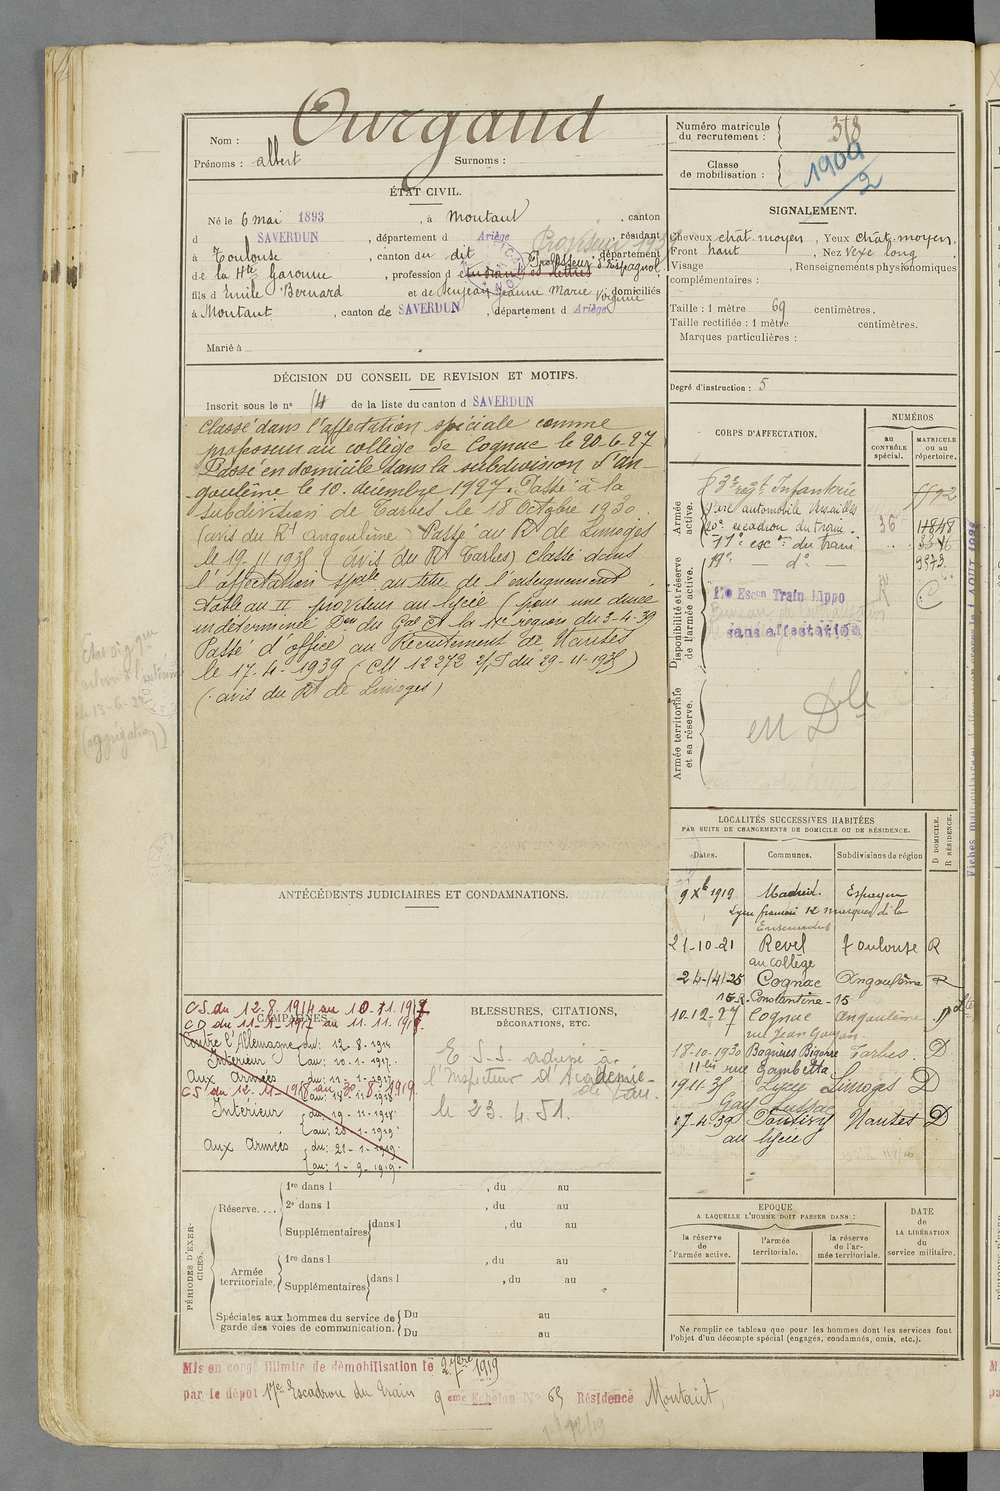 Nom : Ourgaud
Prénoms : albert Surnoms :
ÉTAT CIVIL.
Né le 6 mai 1893, à Montaut, canton
d SAVERDUN, département d Ariège, résidant
Proviseur
à Toulouse, canton du dit, département
de la Hte Garonne, profession d étudiant es lettres Professeur d'Espagnol
fils d Emile Bernard et de Senjean Jeanne Marie Virginie domiciliés
à Montaut, canton de SAVERDUN, département d Ariège
Marié à
DÉCISION DU CONSEIL DE REVISION ET MOTIFS.
Inscrit sous le n° 14 de la liste du canton d SAVERDUN
Classé dans l'affectation spéciale comme
professeur au collège de Cognac le 20-6-27
Passé en domicile dans la subdivision d'An-
goulême le 10. décembre 1927. Passé à la
subdivision de Tarbes le 18 Octobre 1930
(avis du Rt Angoulême Passé au Rt de Limoges
le 19-11-1935 (avis du Rt Tarbes) Classé dans
l'affectation spale au titre de l'enseignement
tableau II proviseur au lycée (pour une durée
indéterminée Don du Gal Ct la 11e région du 3-4-39
Passé d'office au Recrutement de Nantes
le 17-4-1939 (CM 12273 2/5 du 29-11-1935)
(avis du Rt de Limoges)
ANTÉCÉDENTS JUDICIAIRES ET CONDAMNATIONS.
CAMPAGNES.
CS du 12-8-1914 au 10-11-1917
CD du 11-1-1917 au 11.11.1918.
Contre l'Allemagne du: 12-8-1914
Intérieur au: 10-1-1917.
Aux Armées du: 11-1-1917
CS du 12-11-1918 au 30-8-1919
au: 18-11-1918
Intérieur du: 19-11-1918
au: 20-1-1919
Aux Armées du: 21-1-1919.
au: 1-9-1919.
BLESSURES, CITATIONS,
DÉCORATIONS, ETC.
E.S.S. adressé à
l'Inspecteur d'Académie
de Pau.
le 23.4.51.
PÉRIODES D'EXERCICES.
Réserve....
1re dans l , du au
2e dans l , du au
Supplémentaires dans l , du au
Armée territoriale.
1re dans l , du au
Supplémentaires dans l , du au
Spéciales aux hommes du service de
garde des voies de communication.
Du au
Du au
Mis en congé illimité de démobilisation le 2 7bre 1919
par le dépôt 17e Escadron du Train 9eme Echelon No 65 Résidence Montaut
Numéro matricule
du recrutement : 378
Classe
de mobilisation : 1909/2
SIGNALEMENT.
Cheveux chât. moyen, Yeux chât. moyen,
Front haut, Nez vexe long
Visage , Renseignements physionomiques
complémentaires :
Taille : 1 mètre 69 centimètres.
Taille rectifiée : 1 mètre centimètres.
Marques particulières :
Degré d'instruction : 5
CORPS D'AFFECTATION.
NUMÉROS
au
CONTRÔLE
spécial.
MATRICULE
ou au
répertoire.
Armée
active.
83e regt Infanterie
Parc automobile Versailles
20e escadron du train 36 11848
17e escon du train 3346
Disponibilité et réserve
de l'armée active.
17e — do — 9573
11e Escon Train Hippo
sans affectation
Armée territoriale
et sa réserve.
en Dle
LOCALITÉS SUCCESSIVES HABITÉES
PAR SUITE DE CHANGEMENTS DE DOMICILE OU DE RÉSIDENCE.
Dates. Communes. Subdivisions de région
D DOMICILE.
R RÉSIDENCE.
9 Xb 1919 Madrid. Espagne
Lycée français 12 marques de la
Ensenada
21-10-21 Revel Toulouse R
au collège
24-14-25 Cognac Angoulême R
15 R. Constantine - 15
10-12-27 Cognac Angoulême D
rue Jean Goujon
18-10-1930 Bagnères Bigorre Tarbes. D
11 bis rue Gambetta
19-11-35 Lycée Limoges D
Gay Lussac
17-4-39 Pontivy Nantes D
au lycée
EPOQUE
A LAQUELLE L'HOMME DOIT PASSER DANS :
la réserve
de
l'armée active.
l'armée
territoriale.
la réserve
de l'ar-
mée territoriale.
DATE
de
LA LIBÉRATION
du
service militaire.
Ne remplir ce tableau que pour les hommes dont les services font
l'objet d'un décompte spécial (engagés, condamnés, omis, etc.).